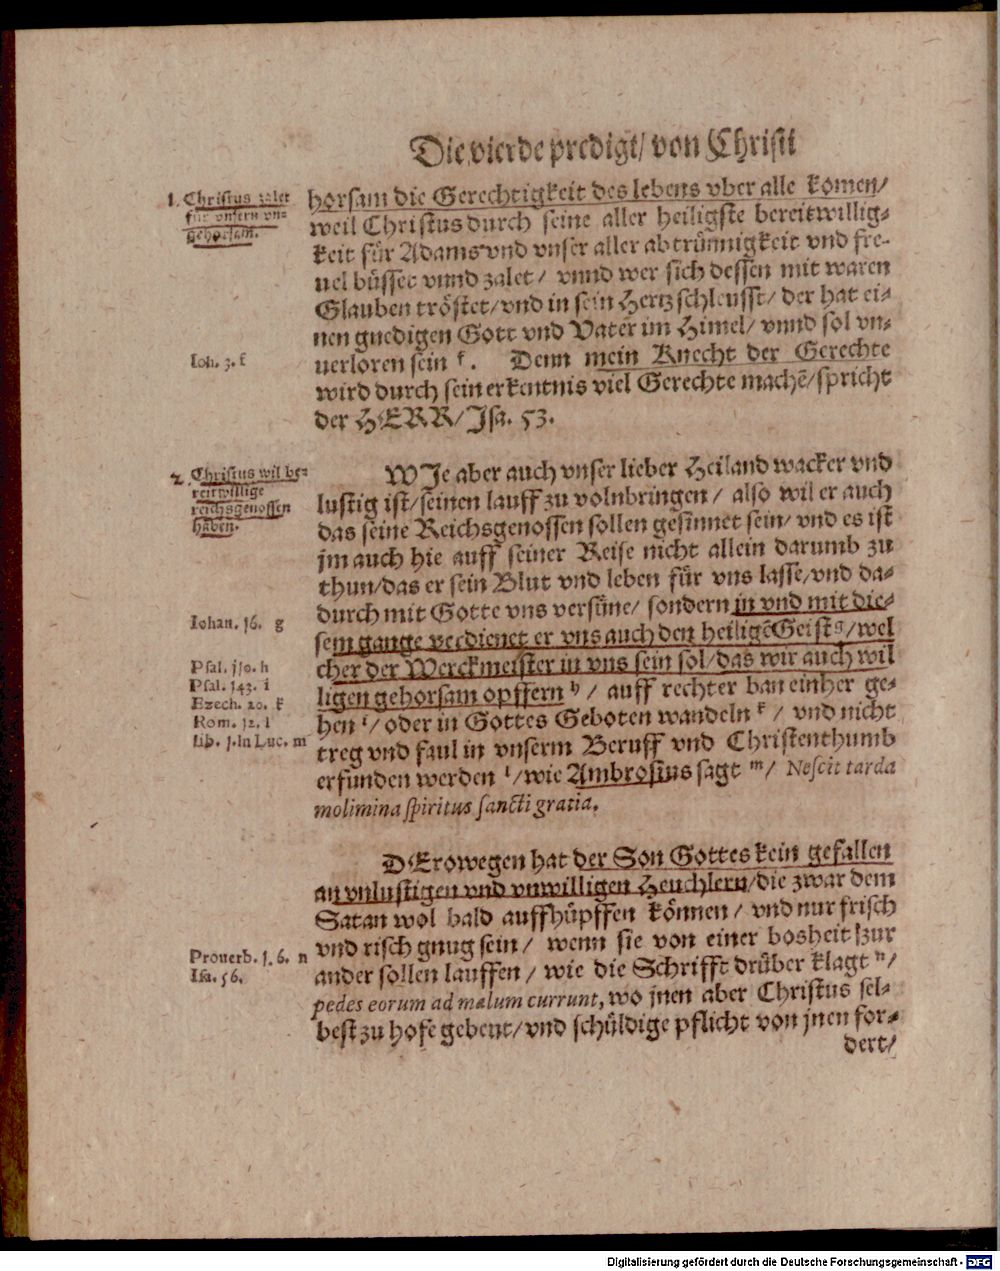 Die vierde predigt/ von Christi
1. Christus zalet
für vnsern vn-
gehorsam.
horsam die Gerechtigkeit des lebens vber alle komen/
weil Christus durch seine aller heiligste bereitwillig-
keit für Adams vnd vnser aller abtrünnigkeit vnd fre-
uel büsset vnnd zalet/ vnnd wer sich dessen mit waren
Glauben tröstet/ vnd in sein Hertz schleusst/ der hat ei-
nen gnedigen Gott vnd Vater im Himel/ vnnd sol vn-
Ioh. 3. f
uerloren sein f. Denn mein Knecht der Gerechte
wird durch sein erkentnis viel Gerechte machē/ spricht
der HERR/ Jsa. 53.
2. Christus wil be-
reitwillige
reichsgenossen
haben.
WJe aber auch vnser lieber Heiland wacker vnd
lustig ist/ seinen lauff zu volnbringen/ also wil er auch
das seine Reichsgenossen sollen gesinnet sein/ vnd es ist
jm auch hie auff seiner Reise nicht allein darumb zu
thun/ das er sein Blut vnd leben für vns lasse/ vnd da-
durch mit Gotte vns versüne/ sondern in vnd mit die-
Iohan. 16. g
sem gange verdienet er vns auch den heiligē Geist g/ wel
cher der Werckmeister in vns sein sol/ das wir auch wil
Psal. 110. h
Psal. 143. i
Ezech. 20. k
Rom. 12. l
lib. 1. In Luc. m
ligen gehorsam opffern h/ auff rechter ban einher ge-
hen i/ oder in Gottes Geboten wandeln k/ vnd nicht
treg vnd faul in vnserm Beruff vnd Christenthumb
erfunden werden l/ wie Ambrosius sagt m/ Nescit tarda
molimina spiritus sancti gratia.
DErowegen hat der Son Gottes kein gefallen
an vnlustigen vnd vnwilligen Heuchlern/ die zwar dem
Satan wol bald auffhüpffen können/ vnd nur frisch
Prouerb. 1. 6. n
Isa. 56.
vnd risch gnug sein/ wenn sie von einer bosheit zur
ander sollen lauffen/ wie die Schrifft drüber klagt n/
pedes eorum ad malum currunt, wo jnen aber Christus sel-
best zu hofe gebeut/ vnd schüldige pflicht von jnen for-
dert/
Digitalisierung gefördert durch die Deutsche Forschungsgemeinschaft - DFG